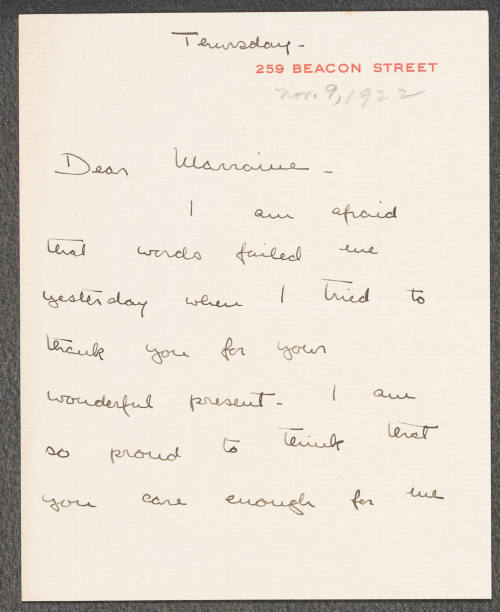 Thursday -
259 BEACON STREET
Nov. 9, 1922
Dear Marraine -
I am afraid
that words failed me
yesterday when I tried to
thank you for your
wonderful present - I am
so proud to think that
you care enough for me